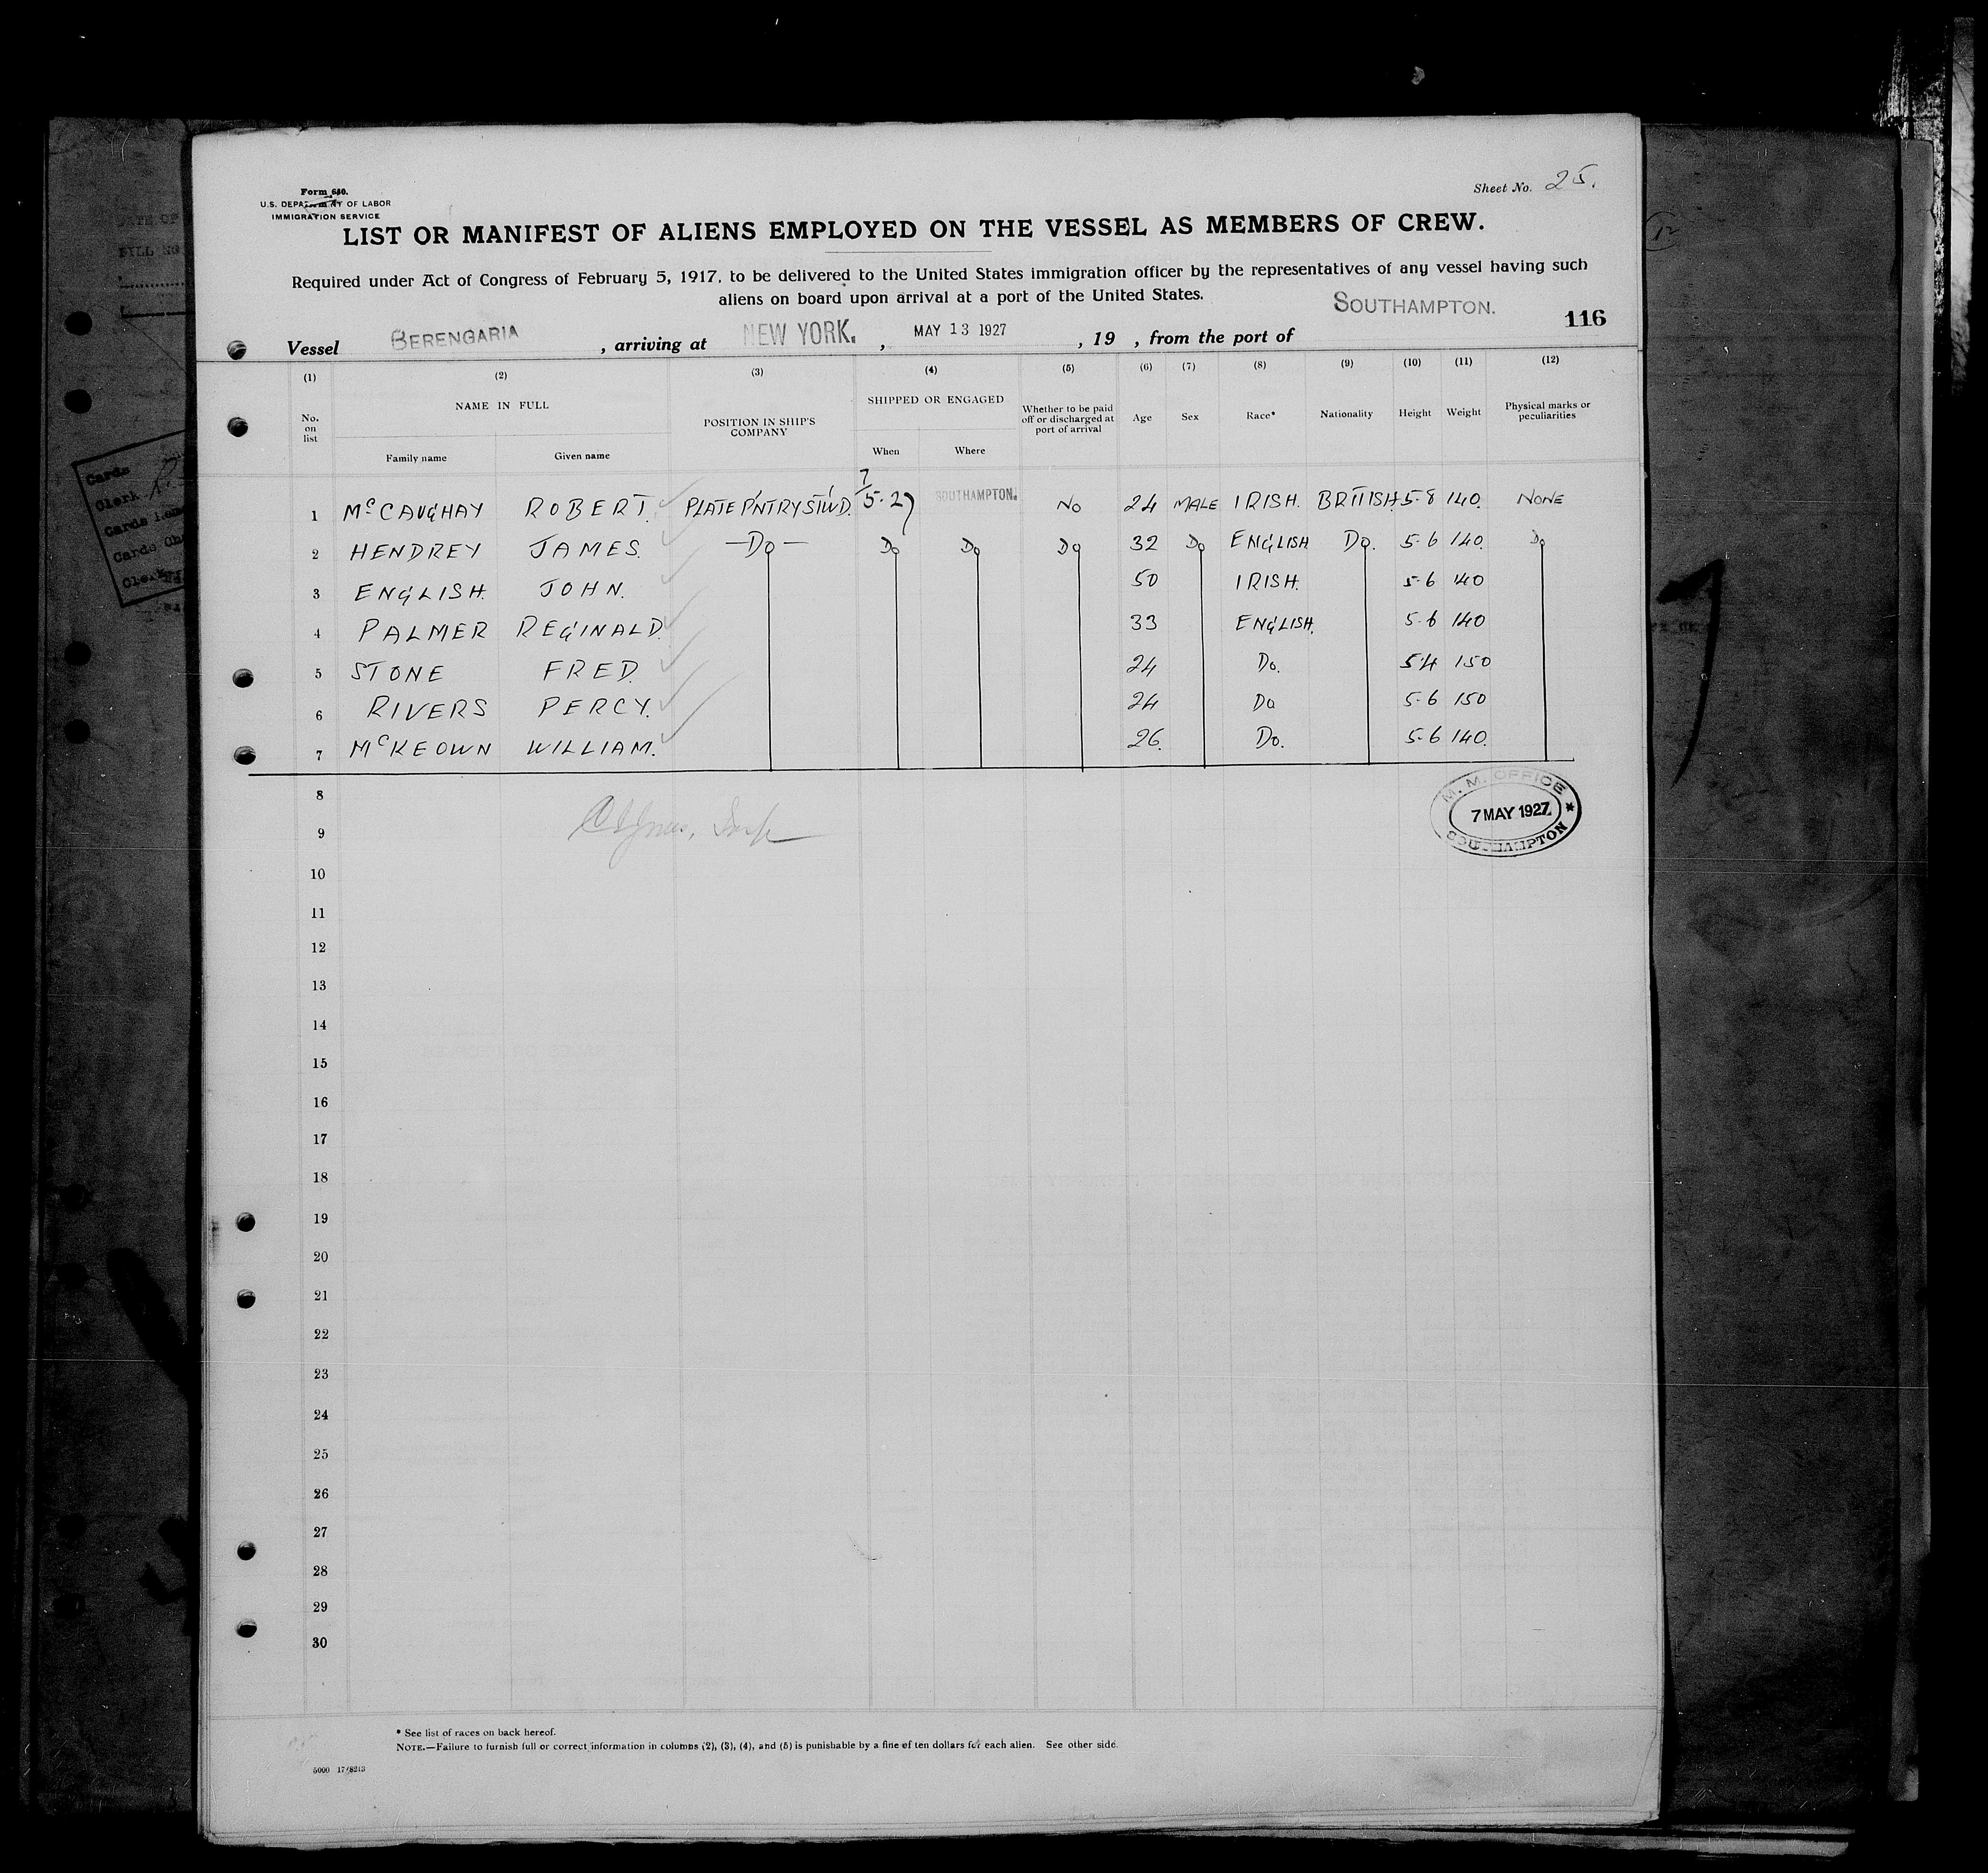 Sheet No. 25.
Form 680.
U.S. DEPARTMENT OF LABOR
IMMIGRATION SERVICE
LIST OR MANIFEST OF ALIENS EMPLOYED ON THE VESSEL AS MEMBERS OF CREW.
Required under Act of Congress of February 5, 1917, to be delivered to the United States immigration officer by the representatives of any vessel having such
aliens on board upon arrival at a port of the United States.
Vessel BERENGARIA, arriving at NEW YORK., MAY 13 1927, 19 , from the port of SOUTHAMPTON. 116
(1) (2) (3) (4) (5) (6) (7) (8) (9) (10) (11) (12)
No. on list NAME IN FULL Family name Given name POSITION IN SHIP'S COMPANY SHIPPED OR ENGAGED When Where Whether to be paid off or discharged at port of arrival Age Sex Race* Nationality Height Weight Physical marks or peculiarities
1 McCAUGHAY ROBERT. PLATE P'NTRY ST'W'D. 7/5.27 SOUTHAMPTON. NO 24 MALE IRISH. BRITISH 5-8 140. NONE
2 HENDREY JAMES. —Do— Do Do Do 32 Do ENGLISH Do. 5-6 140. Do
3 ENGLISH. JOHN. 50 IRISH. 5-6 140
4 PALMER REGINALD. 33 ENGLISH. 5-6 140
5 STONE FRED. 24 Do. 5.4 150
6 RIVERS PERCY. 24 Do 5-6 150
7 McKEOWN WILLIAM. 26. Do. 5-6 140.
M. M. OFFICE
7 MAY 1927
SOUTHAMPTON
8
9
10
11
12
13
14
15
16
17
18
19
20
21
22
23
24
25
26
27
28
29
30
* See list of races on back hereof.
NOTE.—Failure to furnish full or correct information in columns (2), (3), (4), and (5) is punishable by a fine of ten dollars for each alien. See other side.
5000 17/8213